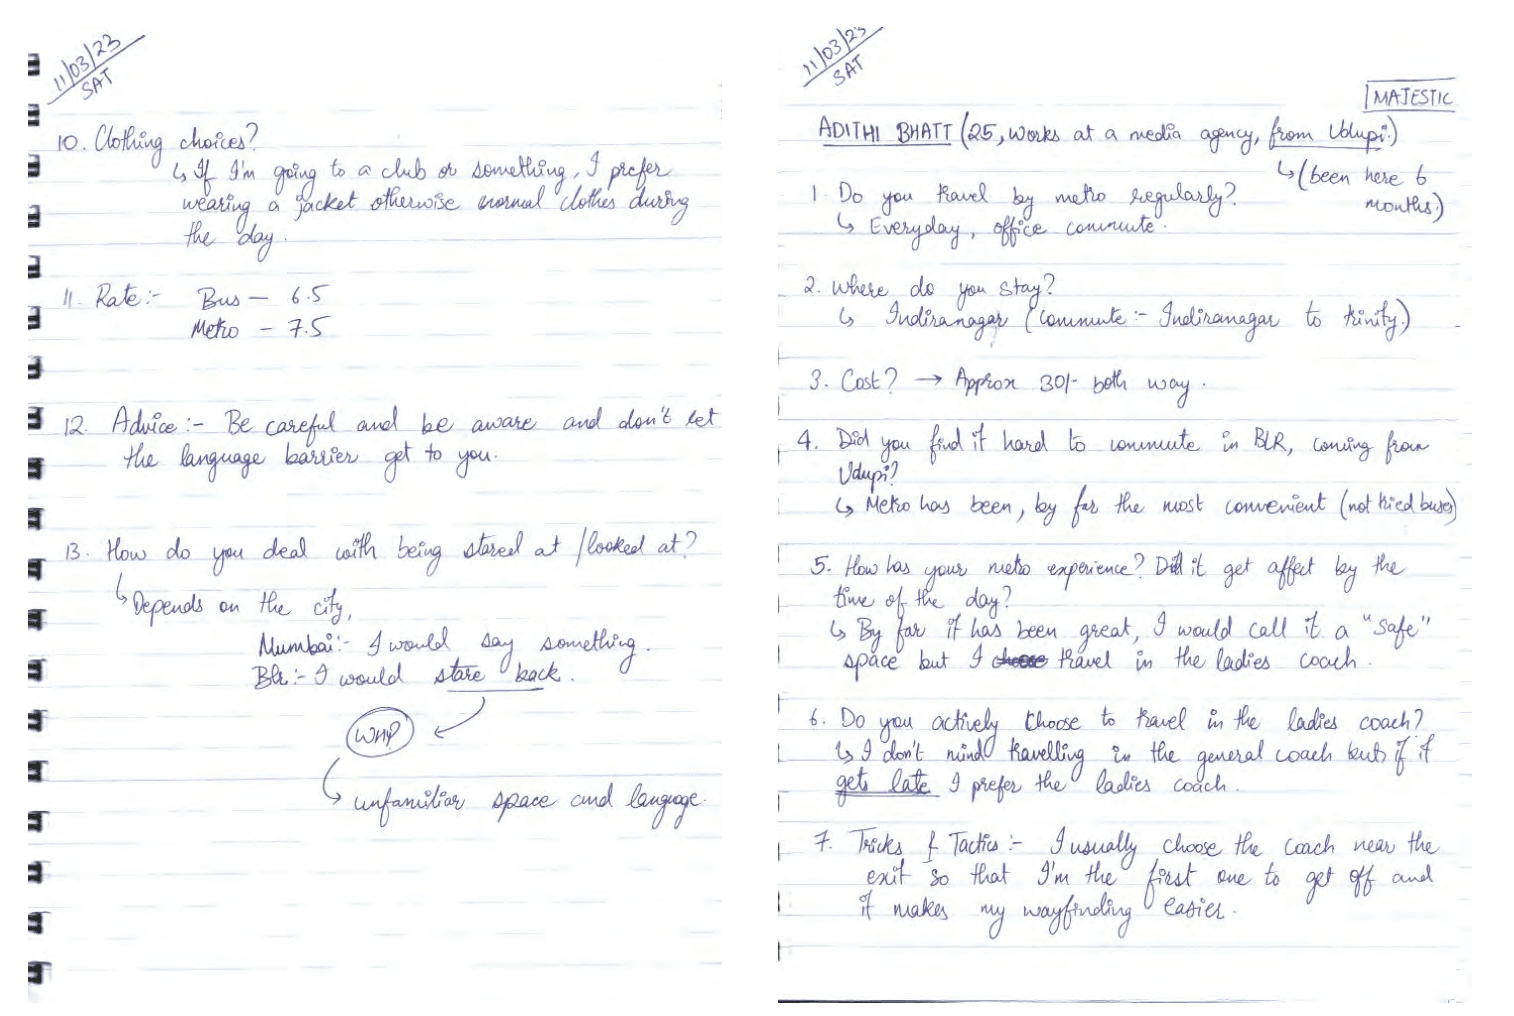 11/03/23
SAT
10. Clothing choices?
↳ If I'm going to a club or something, I prefer
wearing a jacket otherwise normal clothes during
the day.
11. Rate:- Bus — 6.5
Metro - 7.5
12. Advice:- Be careful and be aware and don't let
the language barrier get to you.
13. How do you deal with being stared at /looked at?
↳ Depends on the city,
Mumbai:- I would say something.
Blr:- I would stare back.
WHY
↳ unfamiliar space and language.
11/03/23
SAT
MAJESTIC
ADITHI BHATT (25, works at a media agency, from Udupi.)
↳ (been here 6
months.)
1. Do you travel by metro regularly?
↳ Everyday, office commute.
2. Where do you stay?
↳ Indiranagar (commute:- Indiranagar to trinity.)
3. Cost? → Approx 30/- both way.
4. Did you find it hard to commute in BLR, coming from
Udupi?
↳ Metro has been, by far the most convenient (not tried buses)
5. How has your metro experience? Did it get affect by the
time of the day?
↳ By far it has been great, I would call it a "safe"
space but I travel in the ladies coach.
6. Do you actively choose to travel in the ladies coach?
↳ I don't mind travelling in the general coach but if it
gets late I prefer the ladies coach.
7. Tricks & Tactics:- I usually choose the coach near the
exit so that I'm the first one to get off and
it makes my wayfinding easier.